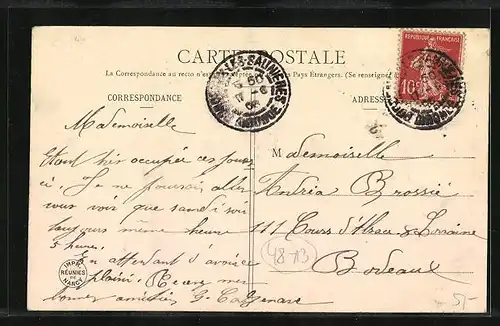 CARTE POSTALE
La Correspondance au recto n'est pas acceptée par tous les Pays Étrangers. (Se renseigner
CORRESPONDANCE
ADRESSE
RÉPUBLIQUE FRANÇAISE
10
Mademoiselle
Etant très occupée ces jours
ci. Je ne pourrais aller
vous voir que samedi soir
toujours même heure
5 heures.
En attendant d'avoir ce
plaisir. Recevez mes
bonnes amitiés G.
Mademoiselle
Andria Brossié
111 Cours d'Alsace & Lorraine
Bodeaux
48-13
IMPRIES
RÉUNIES
DE
NANCY
5/-